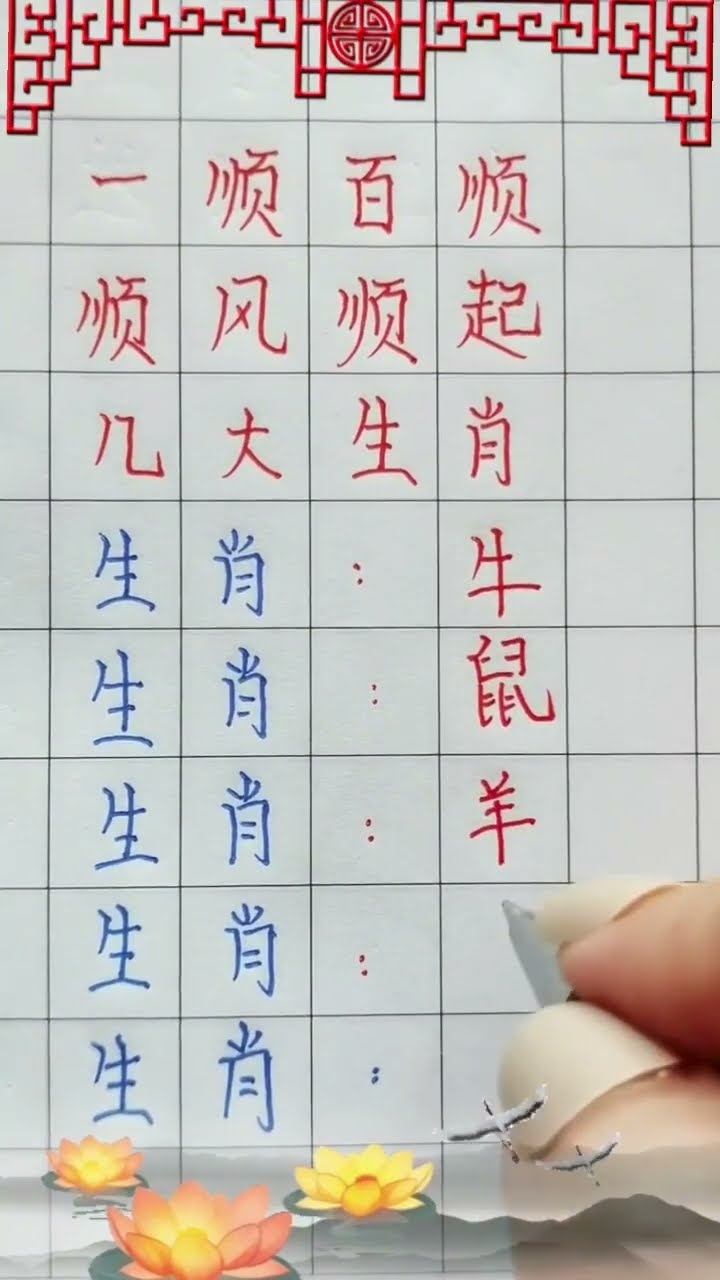 一顺百顺
顺风顺起
几大生肖
生肖：牛
生肖：鼠
生肖：羊
生肖：
生肖：